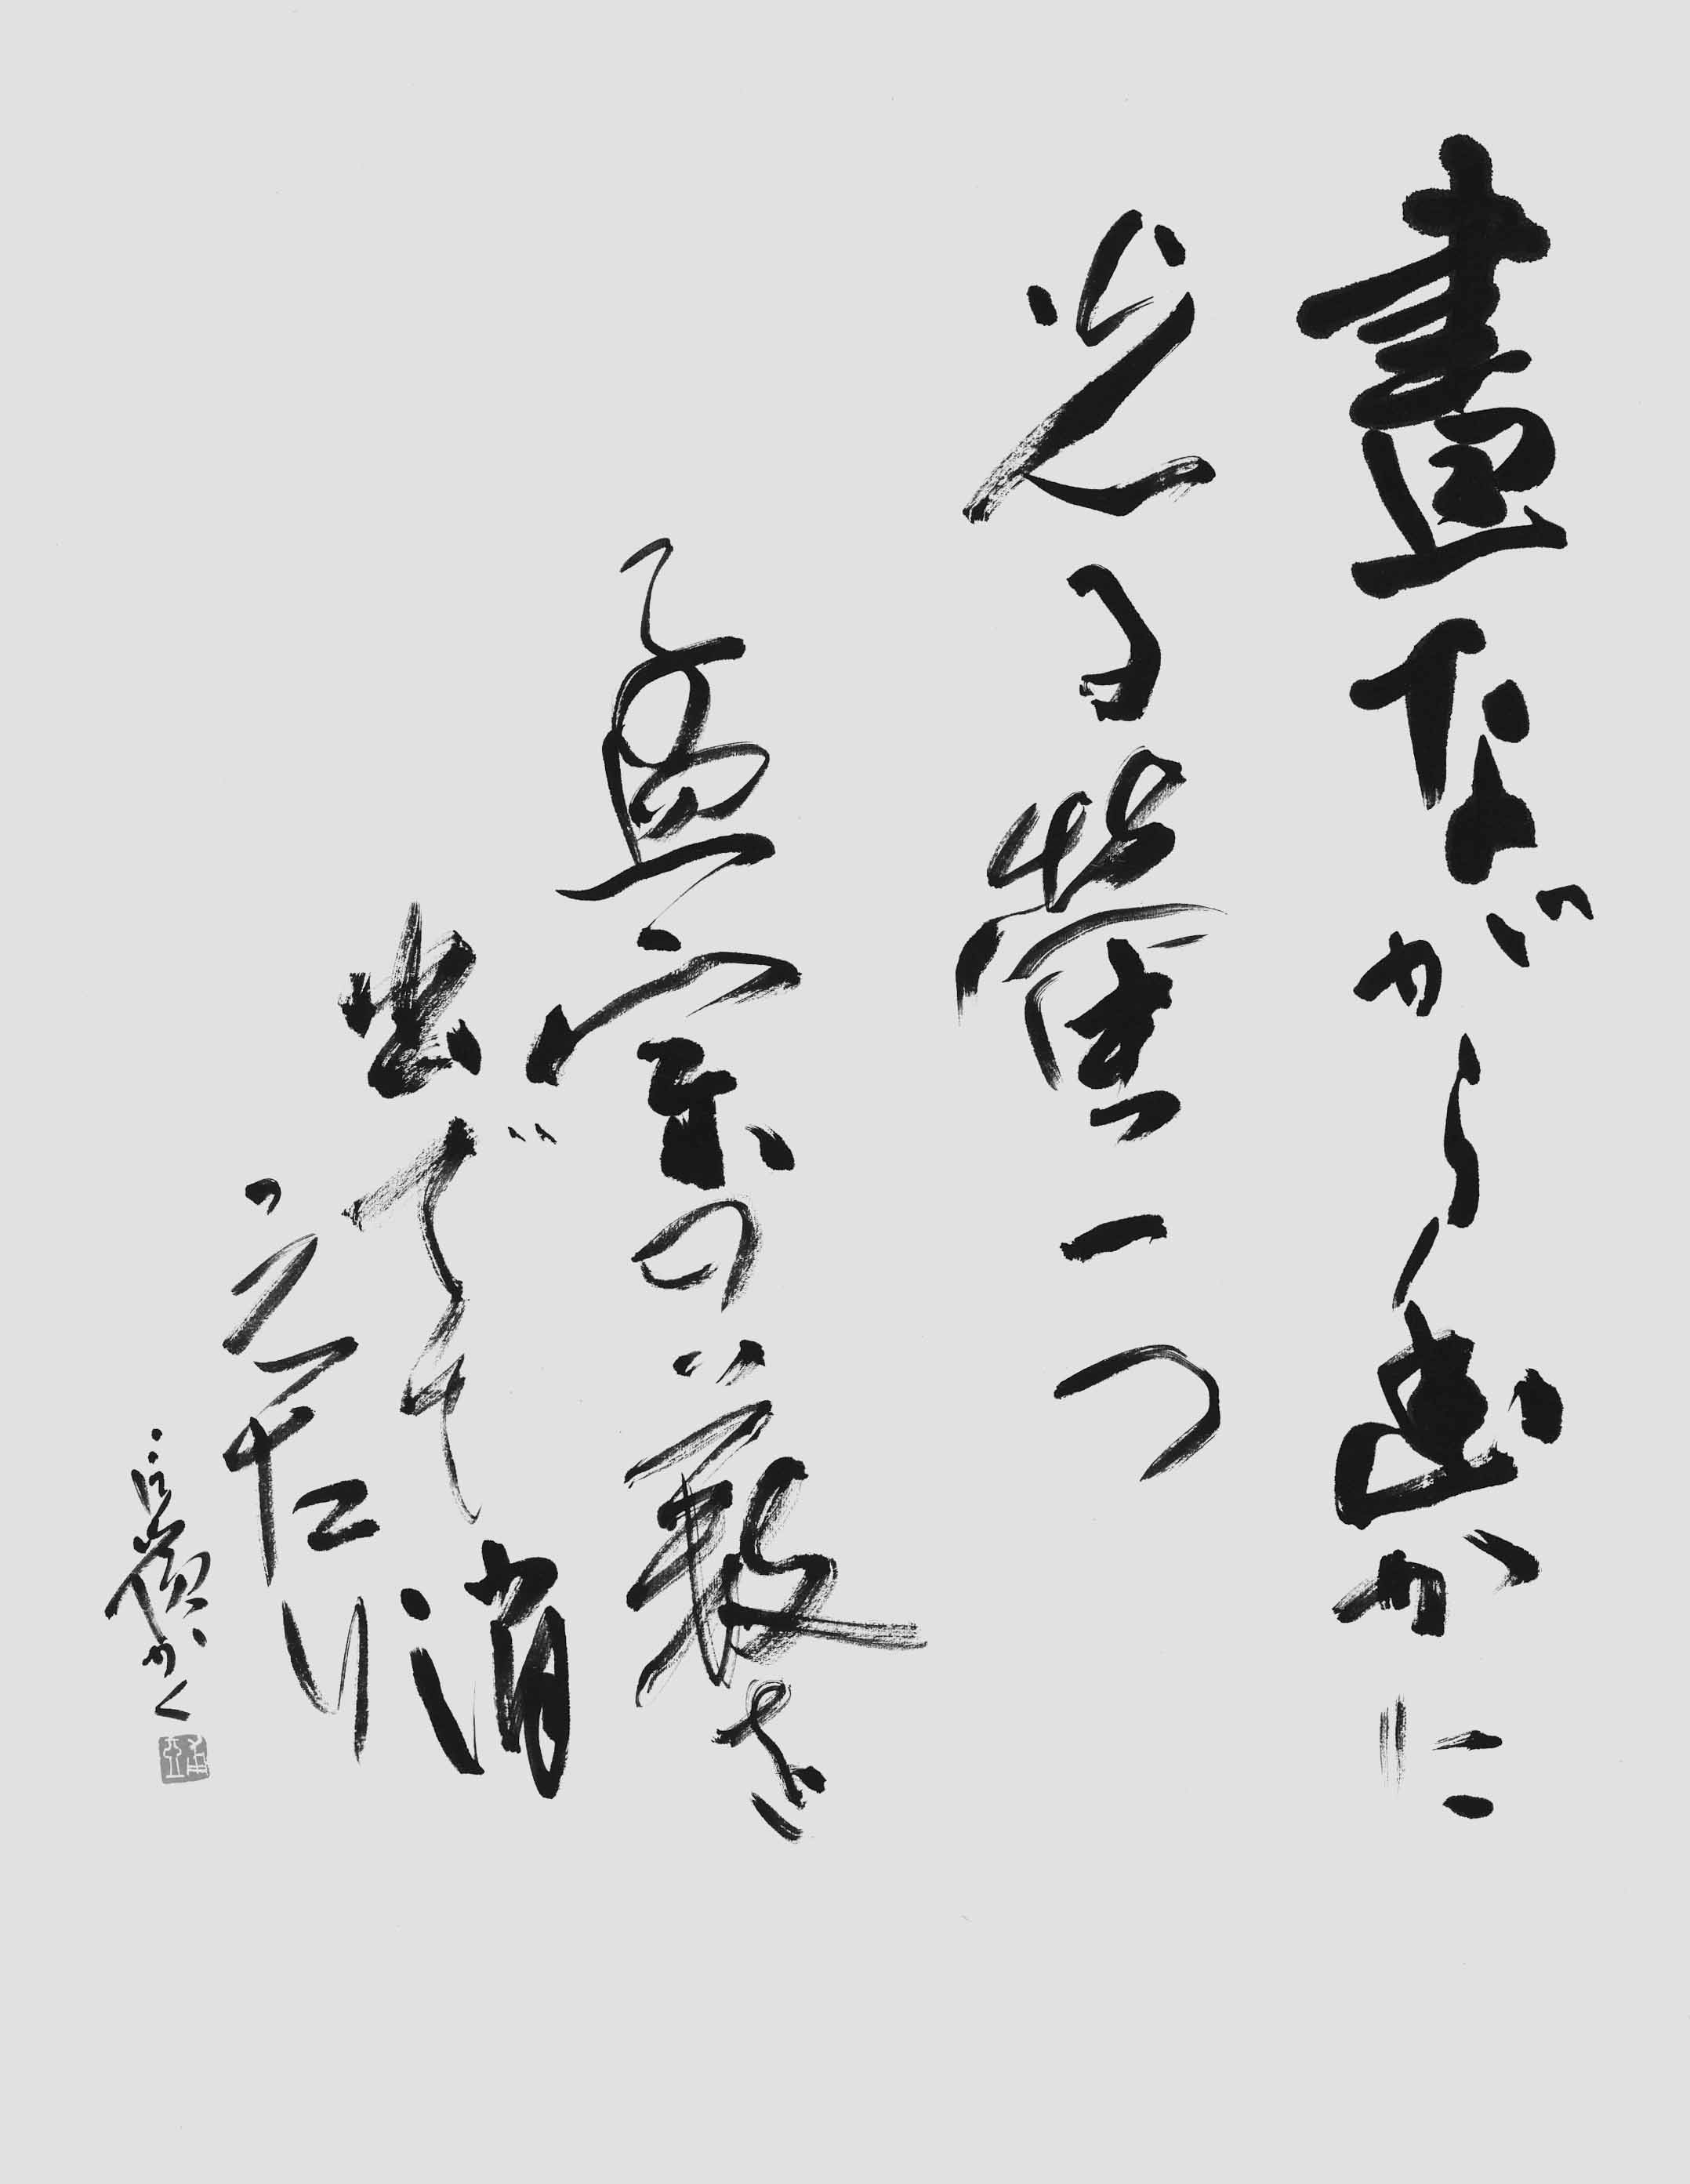 晝ながら幽かに
光る螢一つ
孟宗の藪を
出でて消
えたり
かく